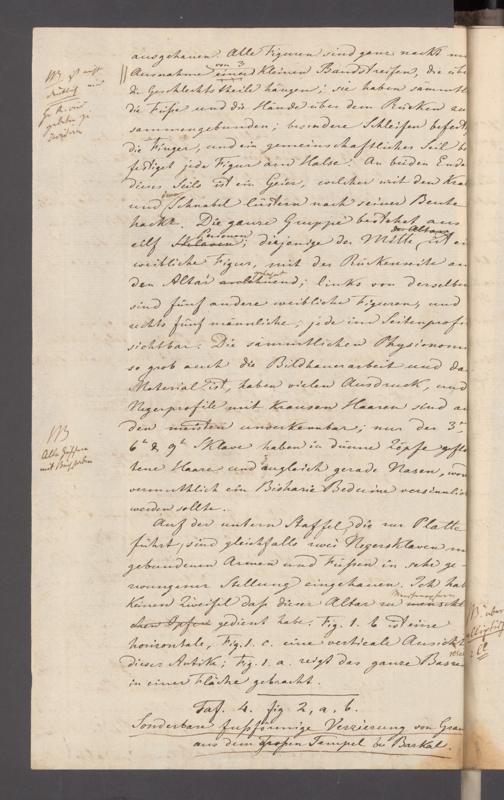 ausgehauen. Alle Figuren sind ganz nackt mi
von 3
Ausnahme einer kleinen Bandstreifen, die übe
die Geschlechtstheile hängen; sie haben sämmtl
die Füße und die Hände über dem Rücken zu
sammengebunden; besondere Schleifen befest
die Finger, und ein gemeinschaftliches Seil be
festiget jede Figur am Halse. An beiden Ende
dieses Seils ist ein Geier, welcher mit den Kral
und Schnabel lüstern nach seiner Beute
hackt. Die ganze Gruppe bestehet aus
Personen
des Altars
eilf Sklaven; diejenige der Mitte, ist ei
weibliche Figur, mit der Rückenseite an
den Altar anlehnend; links von derselben
sind fünf andere weibliche Figuren, und
rechts fünf männliche; jede im Seitenprofi
sichtbar. Die sämmtlichen Physionomi
so grob auch die Bildhauerarbeit und da
Material ist, haben vielen Ausdruck, und
Negerprofile mit krausen Haaren sind an
den meisten unverkennbar; nur der 3te
6te & 9te Sklave haben in dünne Zöpfe gefloch
tene Haare und zugleich gerade Nasen, wo
vermuthlich ein Bisharie Beduine versinnlich
werden sollte.
Auf der untern Staffel, die zur Platte
führt, sind gleichfalls zwei Negersklaven m
gebundenen Armen und Füssen in sehr ge-
zwungener Stellung eingehauen. Ich hab
keinen Zweifel daß dieser Altar zu mensch
chen Opfern gedient habe. Fig. 1. b ist eine
horizontale, Fig. 1. c. eine verticale Ansicht
dieser Antike; Fig. 1. a. zeigt das ganze Basre
in einer Fläche gebracht.
Taf. 4. fig. 2, a, b.
Sonderbare fußförmige Verzierung von Gran
aus dem großen Tempel bei Barkal.
NB
NB
mit